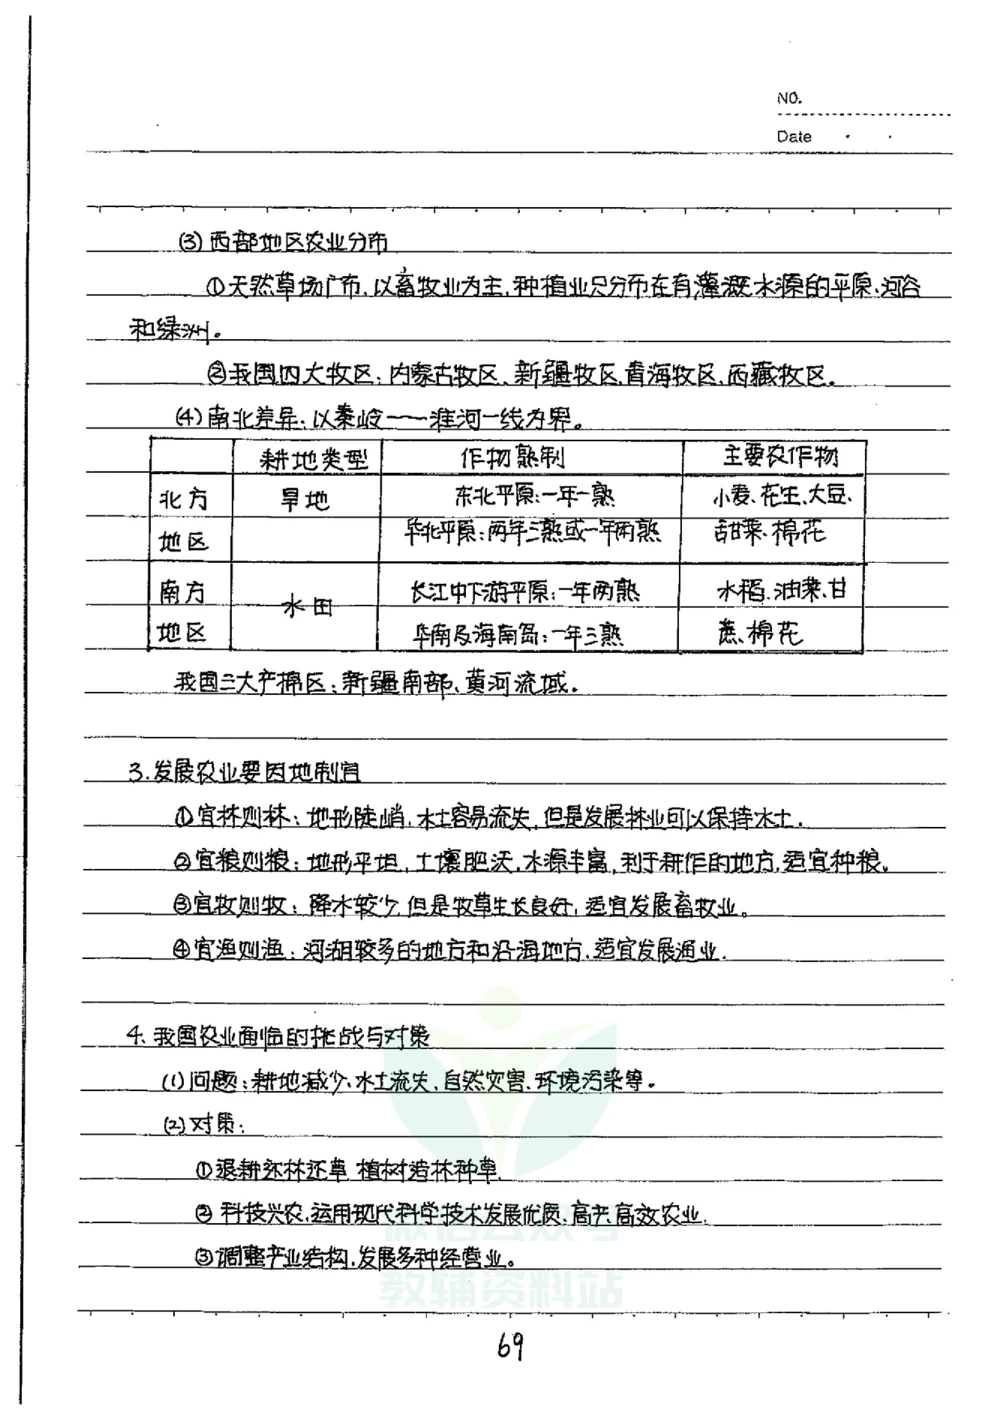 NO.
Date
(3) 西部地区农业分布
①天然草场广布,以畜牧业为主,种植业只分布在有灌溉水源的平原、河谷
和绿洲。
②我国四大牧区:内蒙古牧区、新疆牧区、青海牧区、西藏牧区。
(4) 南北差异:以秦岭——淮河一线为界。
耕地类型 作物熟制 主要农作物
北方 旱地 东北平原:一年一熟 小麦、花生、大豆、
地区 华北平原:两年三熟或一年两熟 甜菜、棉花
南方 水田 长江中下游平原:一年两熟 水稻、油菜、甘
地区 华南及海南岛:一年三熟 蔗、棉花
我国三大产棉区:新疆南部、黄河流域.
3.发展农业要因地制宜
①宜林则林:地形陡峭,水土容易流失,但是发展林业可以保持水土.
②宜粮则粮:地形平坦,土壤肥沃,水源丰富,利于耕作的地方,适宜种粮。
③宜牧则牧:降水较少,但是牧草生长良好,适宜发展畜牧业。
④宜渔则渔:河湖较多的地方和沿海地方,适宜发展渔业.
4.我国农业面临的挑战与对策
(1)问题:耕地减少、水土流失、自然灾害、环境污染等。
(2)对策:
①退耕还林还草 植树造林种草
②科技兴农,运用现代科学技术发展优质、高产、高效农业.
③调整产业结构,发展多种经营业。
微信公众号
教辅资料站
69